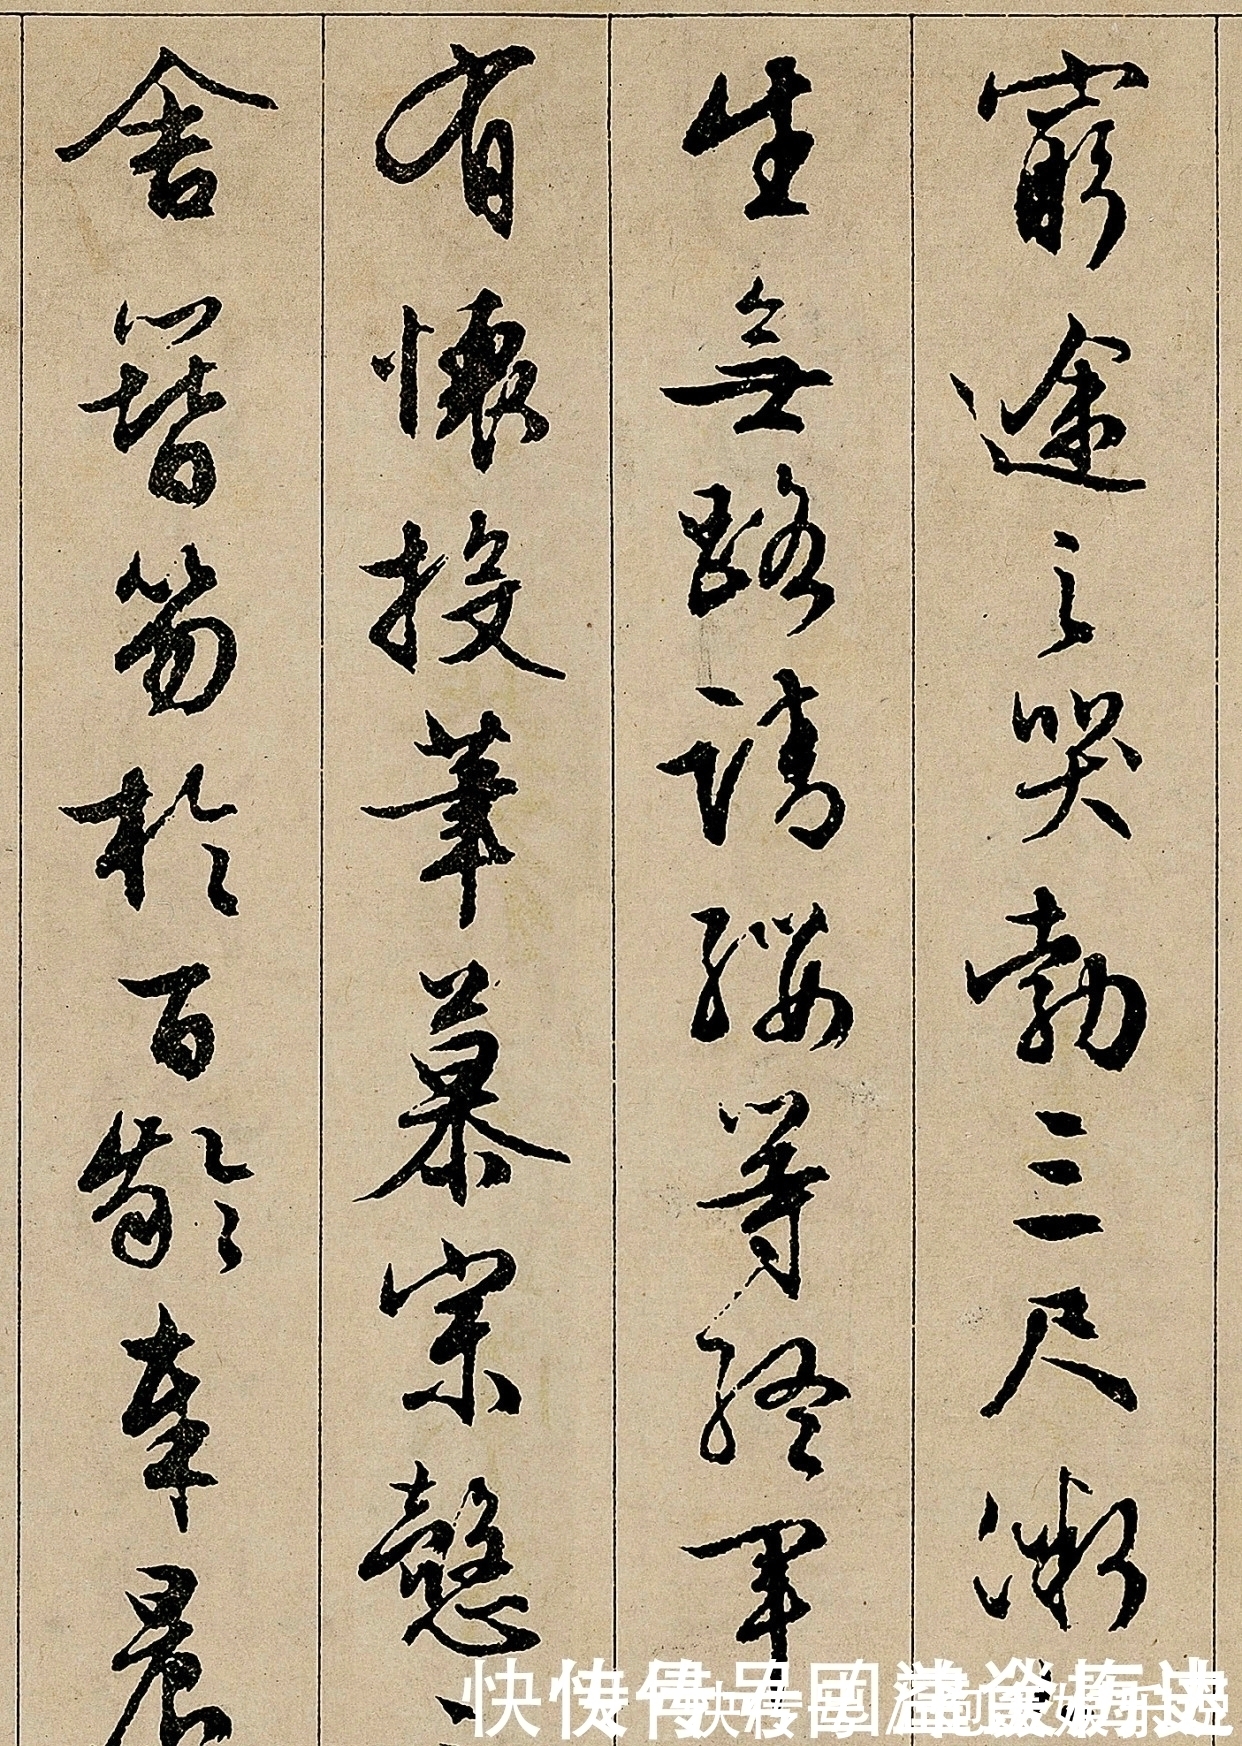 窮途之哭勃三尺微
生無路請纓等終軍
有懷投筆慕宗愨
舍簪笏於百齡奉晨